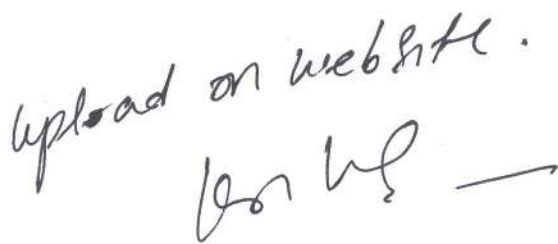 upload on website.